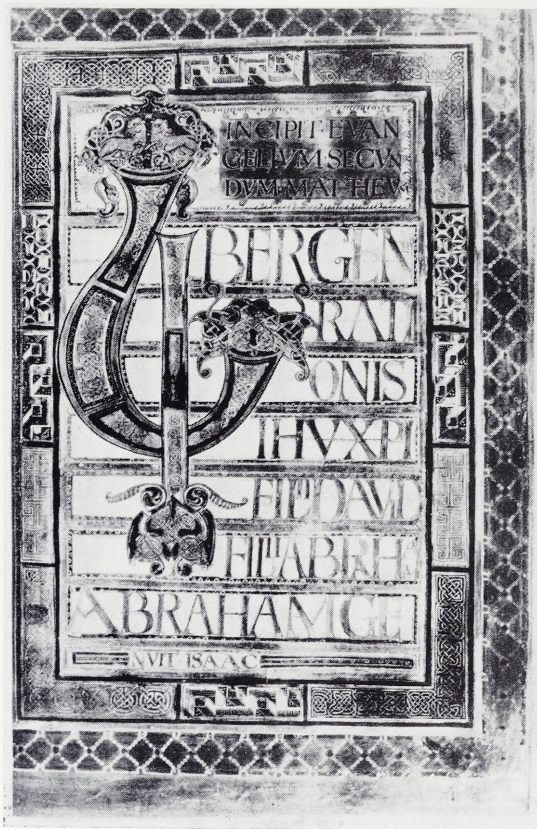 INCIPIT·EVAN
GELIVM SECVN
DVM·MATHEVM
LIBERGEN
ERATI
ONIS
IHVXPI
FILII DAVID
FILII ABRHE
ABRAHAMGE
NVIT ISAAC